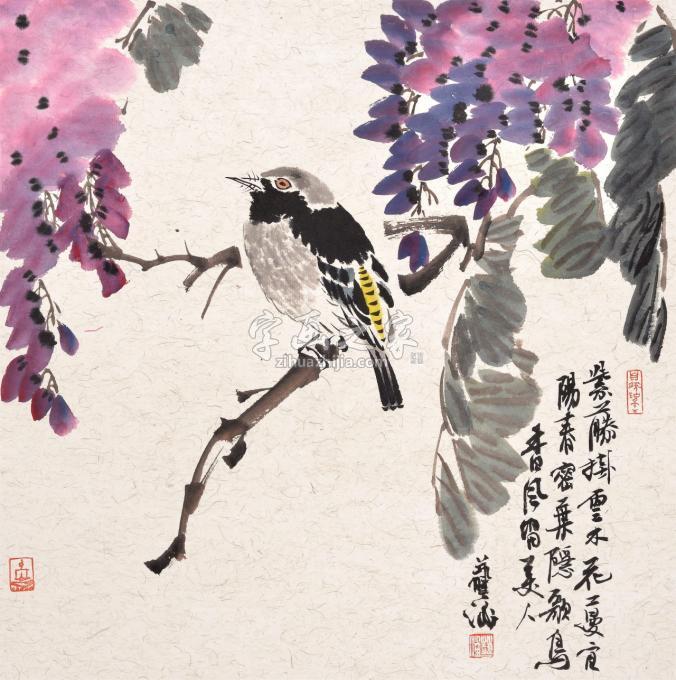 紫藤掛雲木花蔓宜
陽春密葉隱歌鳥
香风留美人
字画之家
zihuazhijia.com